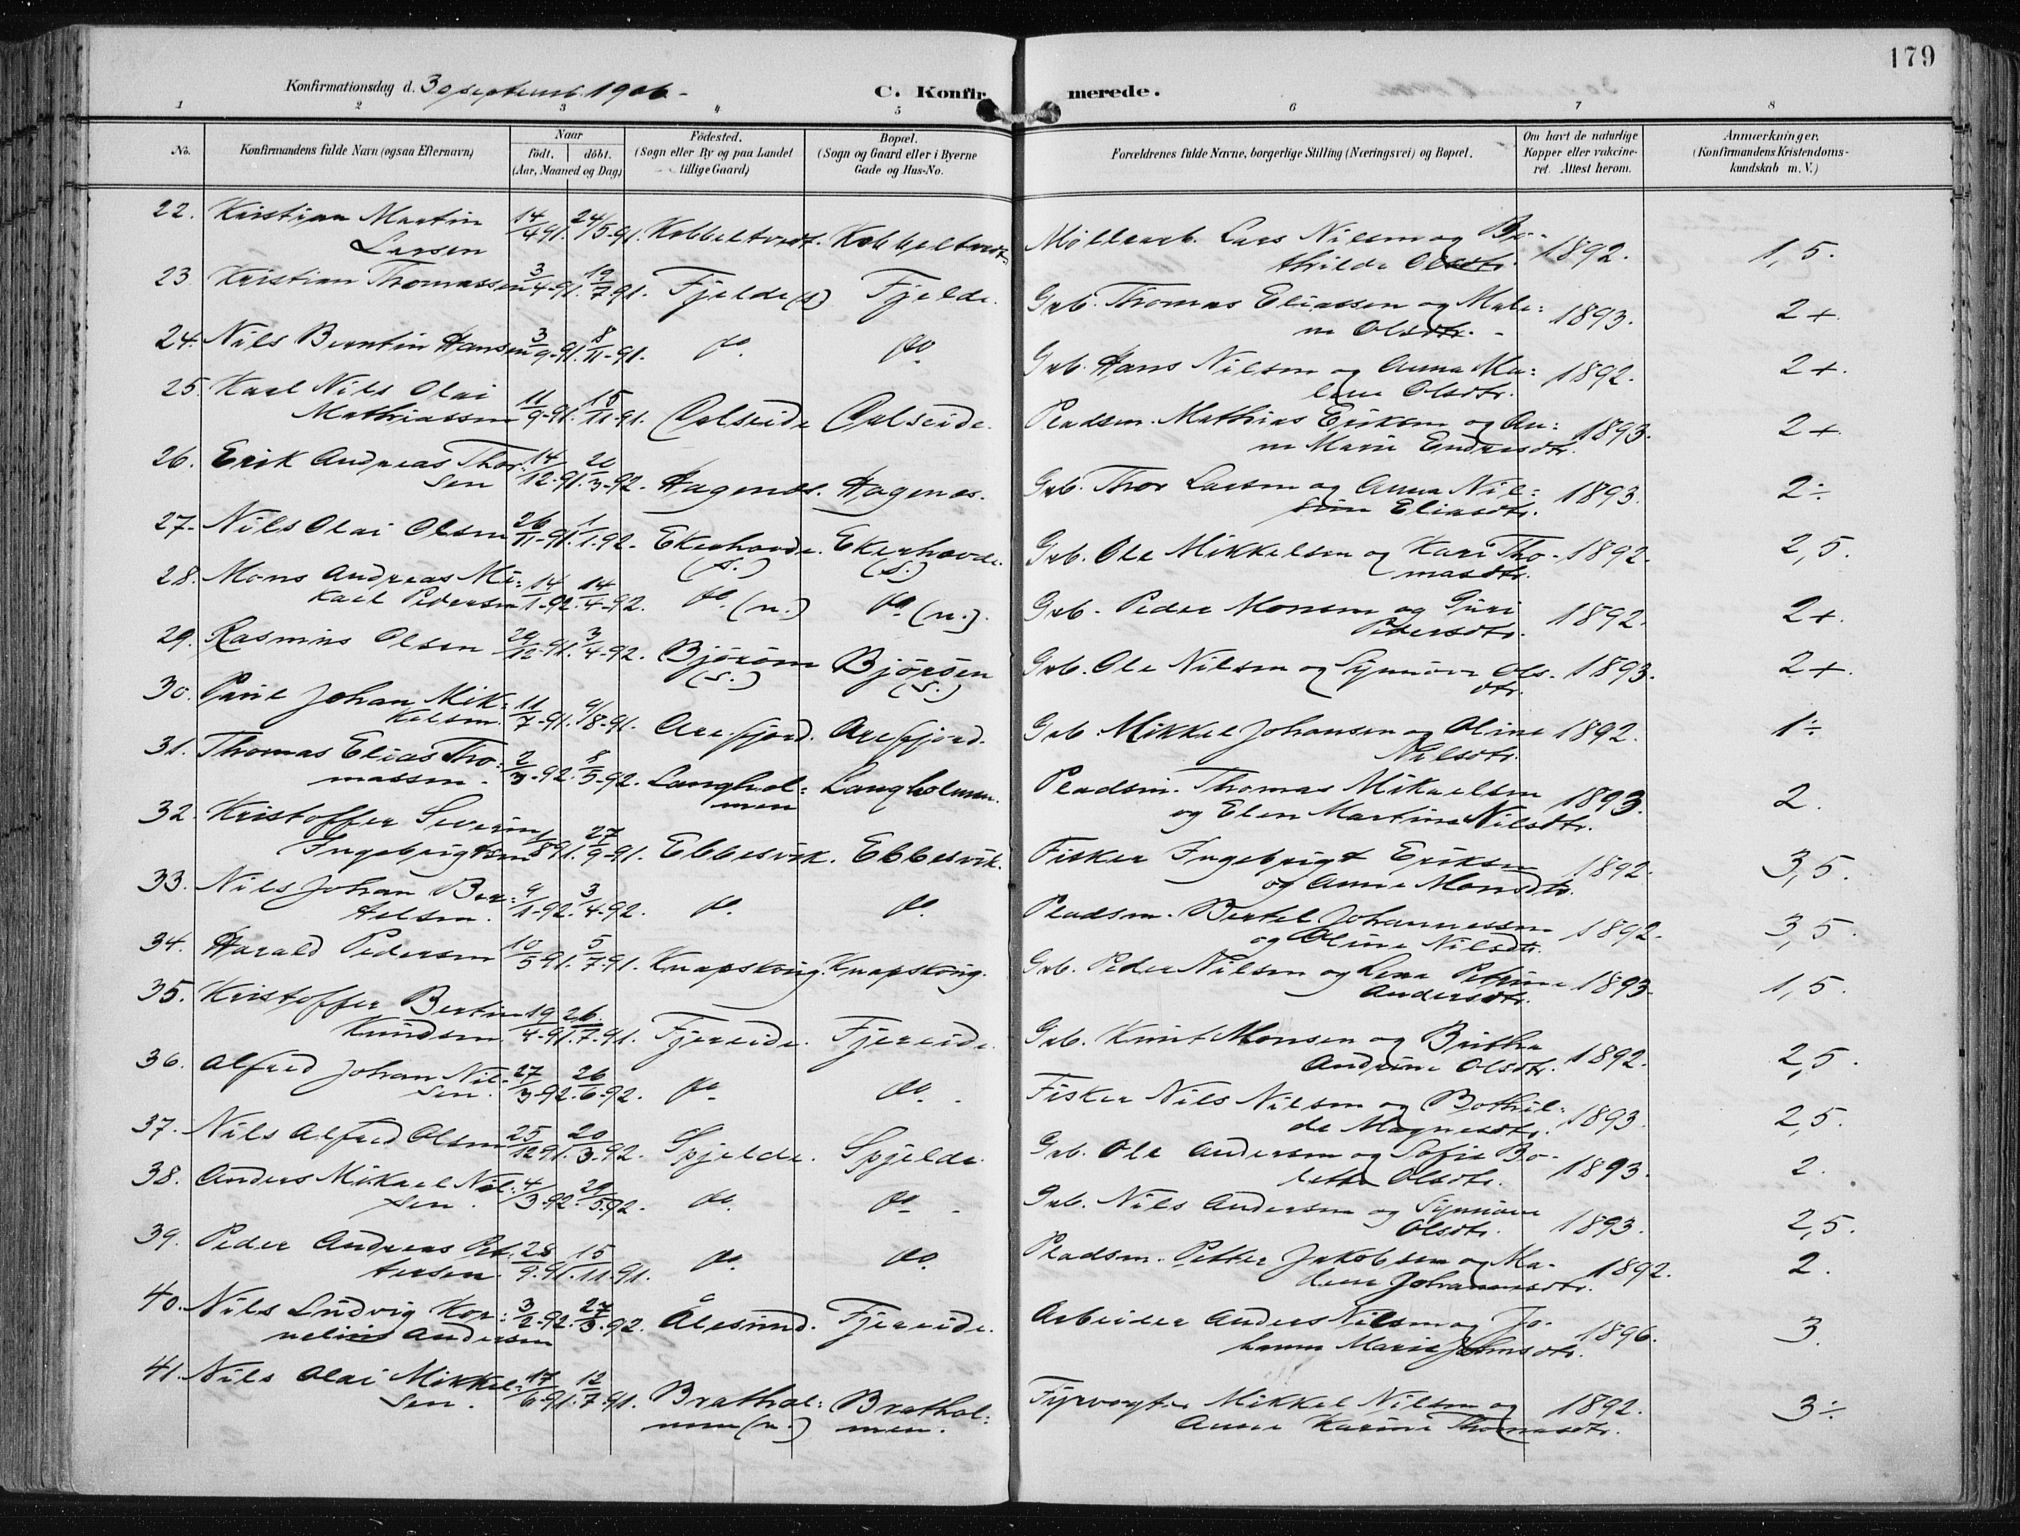 179
Konfirmationsdag d. 30 septemb. 1906 -
C. Konfirmerede.
1 2 3 4 5 6 7 8
No.
Konfirmandens fulde Navn (ogsaa Efternavn)
Naar
födt. döbt.
(Aar, Maaned og Dag)
Födested.
(Sogn eller By og paa Landet
tillige Gaard)
Bopæl.
(Sogn og Gaard eller i Byerne
Gade og Hus-No.
Forældrenes fulde Navne, borgerlige Stilling (Næringsvei) og Bopæl.
Om havt de naturlige
Kopper eller vakcine-
ret. Attest herom.
Anmærkninger.
(Konfirmandens Kristendoms-
kundskab m. V.)
22. Kristian Martin 14/4 91. 24/5-91. Kobbeltvedt. Kobbeltvedt. Møllearb. Lars Nilsen og Bo- 1892. 1,5.
Larsen thilde Olsdtr.
23 Kristian Thomassen 3/4-91. 19/7-91. Fjelde (s) Fjelde. Grb. Thomas Eliassen og Male= 1893. 2+.
ne Olsdtr. -
24. Nils Berntin Hansen 3/9-91. 8/11-91. do. do Grb. Hans Nilsen og Anna Ma= 1892. 2+.
lene Olsdtr.
25. Karl Nils Olai 11/9-91. 15/11-91. Calseide Calseide. Pladsm. Mathias Eriksen og An= 1893. 2+.
Mathiassen ne Marie Endresdtr.
26. Erik Andreas Thor 14/12-91. 20/3-92. Hagenæs. Hagenæs. Grb. Thor Larsen og Anna Nil= 1893. 2÷
sen sine Eliasdtr.
27. Nils Olai Olsen 26/11-91. 1/1-92. Ekerhovde. Ekerhovde. Grb. Ole Mikkelsen og Kari Tho- 1892. 2,5.
(s.) (s.) masdtr.
28. Mons Andreas Mi= 14/1-92. 14/4-92. do. (n.) do (n.). Grb. Peder Monsen og Guri 1892. 2+.
kael Pedersen Pedersdtr.
29. Rasmus Olsen 29/12-91. 3/4-92. Bjørøen Bjørøen Grb. Ole Nilsen og Synnøve Ols- 1893. 2+.
(s.) (s.) dtr.
30. Paul Johan Mik- 11/7-91. 9/8-91. Arefjord. Arefjord. Grb. Mikkel Johansen og Oline 1892. 1÷
kelsen. Nilsdtr.
31. Thomas Elias Tho= 2/3-92. 8/5-92. Langhol= Langholmen. Pladsm. Thomas Mikaelsen 1893. 2.
massen. men og Elen Martine Nilsdtr.
32. Kristoffer Severin 1/8 91. 27/9-91. Ebbesvik. Ebbesvik. Fisker Ingebrigt Eriksen 1892. 3,5.
Ingebrigtsen og Anne Monsdtr.
33. Nils Johan Ber= 9/1-92. 3/4-92. do. do. Pladsm. Bertel Johannessen 1892. 3,5.
telsen. og Oline Nilsdtr.
34. Harald Pedersen 10/5-91. 5/7-91. Knapskog. Knapskog. Grb. Peder Nilsen og Lena Petrine 1893. 1,5.
Andersdtr.
35. Kristoffer Bertin 19/4-91. 26/7-91. Fjereide. Fjereide. Grb. Knut Monsen og Britha 1892. 2,5.
Knudsen Andrine Olsdtr.
36. Alfred Johan Nil= 27/3-92. 26/6-92. do. do. Fisker Nils Nilsen og Bothil- 1893. 2,5.
sen. de Magnesdtr.
37. Nils Alfred Olsen 25/12 91. 20/3-92. Spjelde. Spjelde. Grb. Ole Andersen og Sofie Bo- 1893. 2.
lette Olsdtr.
38. Anders Mikael Nil= 4/3-92. 29/5-92. do. do- Grb. Nils Andersen og Synnøve 1893. 2,5.
sen. Olsdtr.
39. Peder Andreas Pet- 28/9-91. 15/11-91. do. do. Pladsm. Petter Jakobsen og Ma- 1892. 2.
tersen. lene Johannesdtr.
40. Nils Ludvig Kor= 3/2-92. 27/3-92. Ålesund. Fjereide. Arbeider Anders Nilsen og Jo- 1896. 3.
nelius Andersen hanne Marie Jonsdtr.
41. Nils Olai Mikkel= 17/6-91. 12/7-91. Brathol= Brathol= Fyrvogter Mikkel Nilsen og 1892. 3÷
sen. men (n.) men. Anne Karine Thomasdtr.